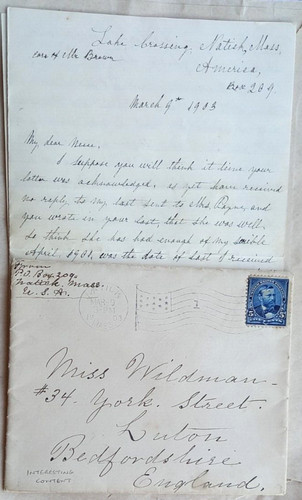 Lake Crossing, Natick, Mass,
care of Mr Brown
America,
Box 209.
March 9th 1903
My dear
I suppose you will think it time your
letter was acknowledged, as yet have received
no reply, to my last sent to Mrs and
you wrote in your last, that she was well,
so think she has had enough of my
April 1901, was the date of last I received
P.O. Box 209.
Natick Mass.
U. S. A.
5 5
Miss Wildman
#34. York. Street.
Luton
Bedfordshire
England.
INTERESTING
CONTENT